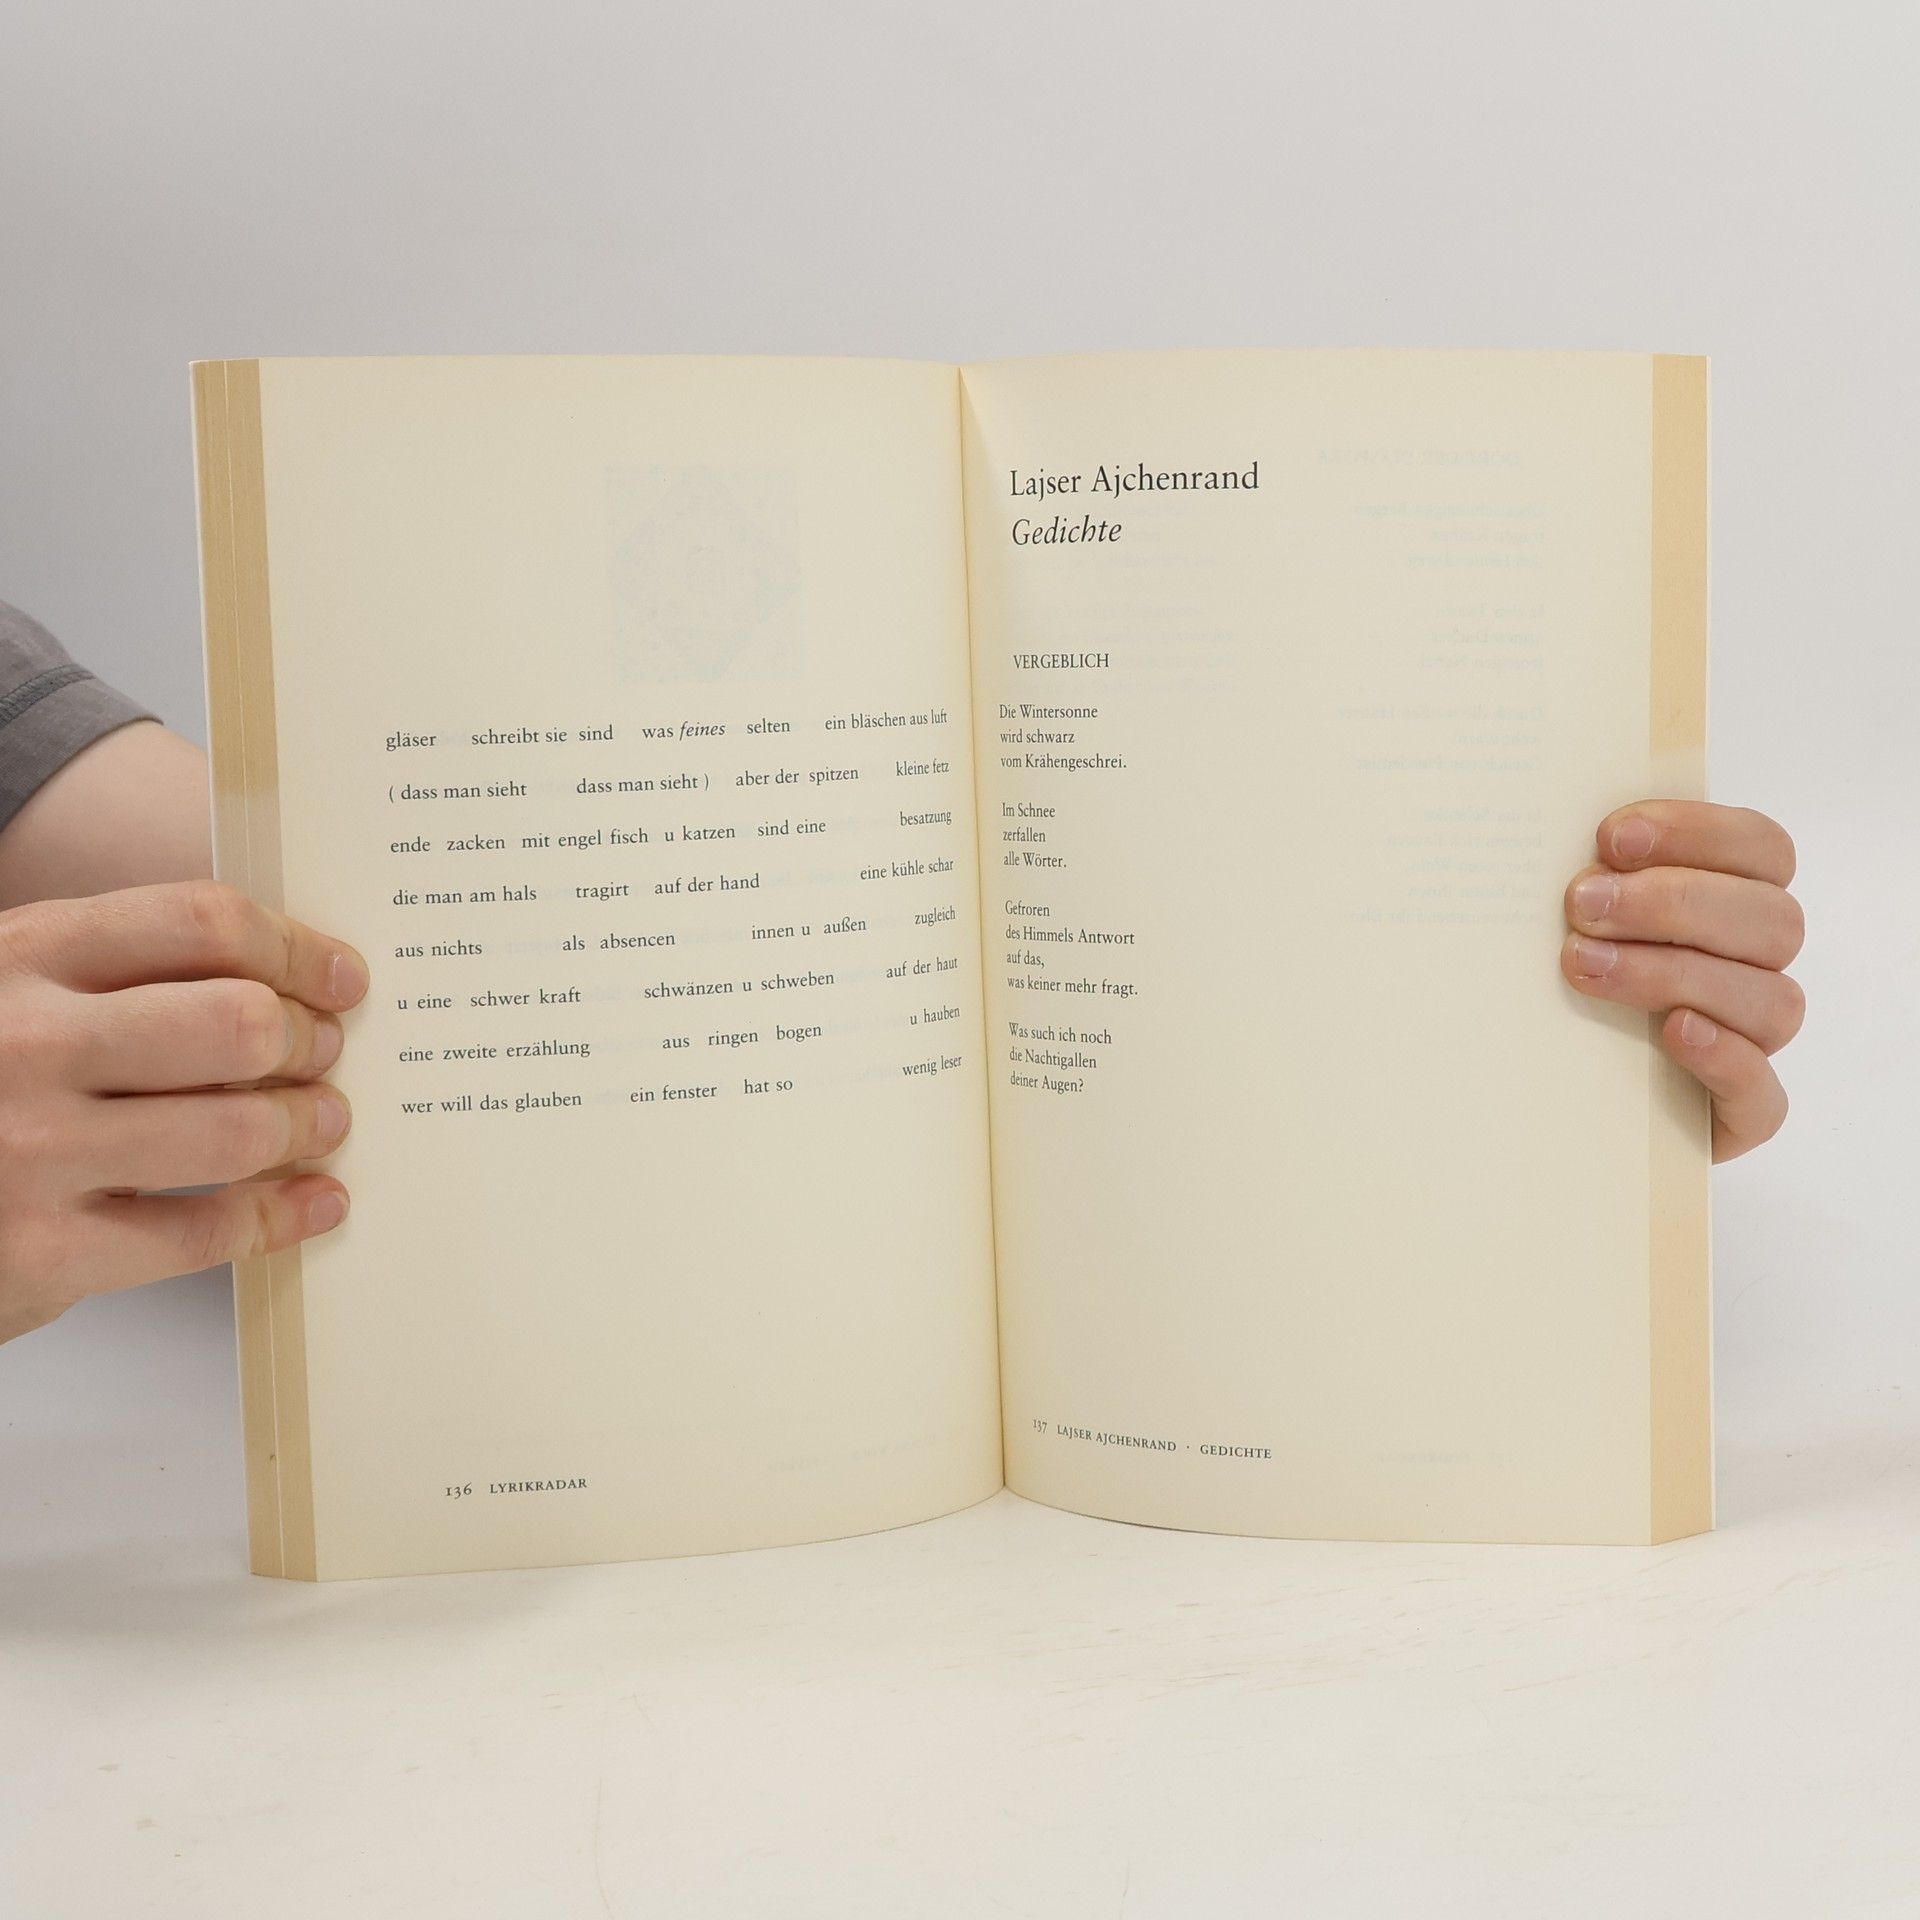 gläser schreibt sie sind was feines selten ein bläschen aus luft
( dass man sieht dass man sieht ) aber der spitzen kleine fetz
ende zacken mit engel fisch u katzen sind eine besatzung
die man am hals tragirt auf der hand eine kühle schar
aus nichts als absencen innen u außen zugleich
u eine schwer kraft schwänzen u schweben auf der haut
eine zweite erzählung aus ringen bogen u hauben
wer will das glauben ein fenster hat so wenig leser
136 LYRIKRADAR
Lajser Ajchenrand
Gedichte
VERGEBLICH
Die Wintersonne
wird schwarz
vom Krähengeschrei.
Im Schnee
zerfallen
alle Wörter.
Gefroren
des Himmels Antwort
auf das,
was keiner mehr fragt.
Was such ich noch
die Nachtigallen
deiner Augen?
137 LAJSER AJCHENRAND · GEDICHTE